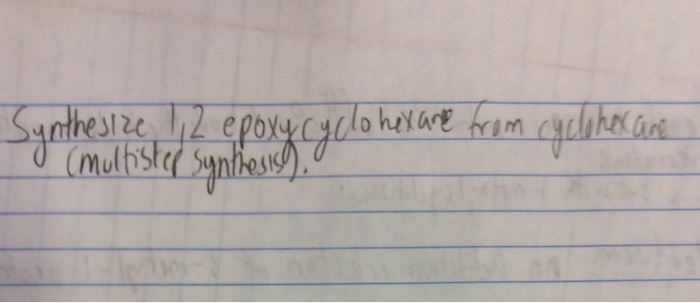 Synthesize 1,2 epoxycyclohexane from cyclohexane
(multistep synthesis).